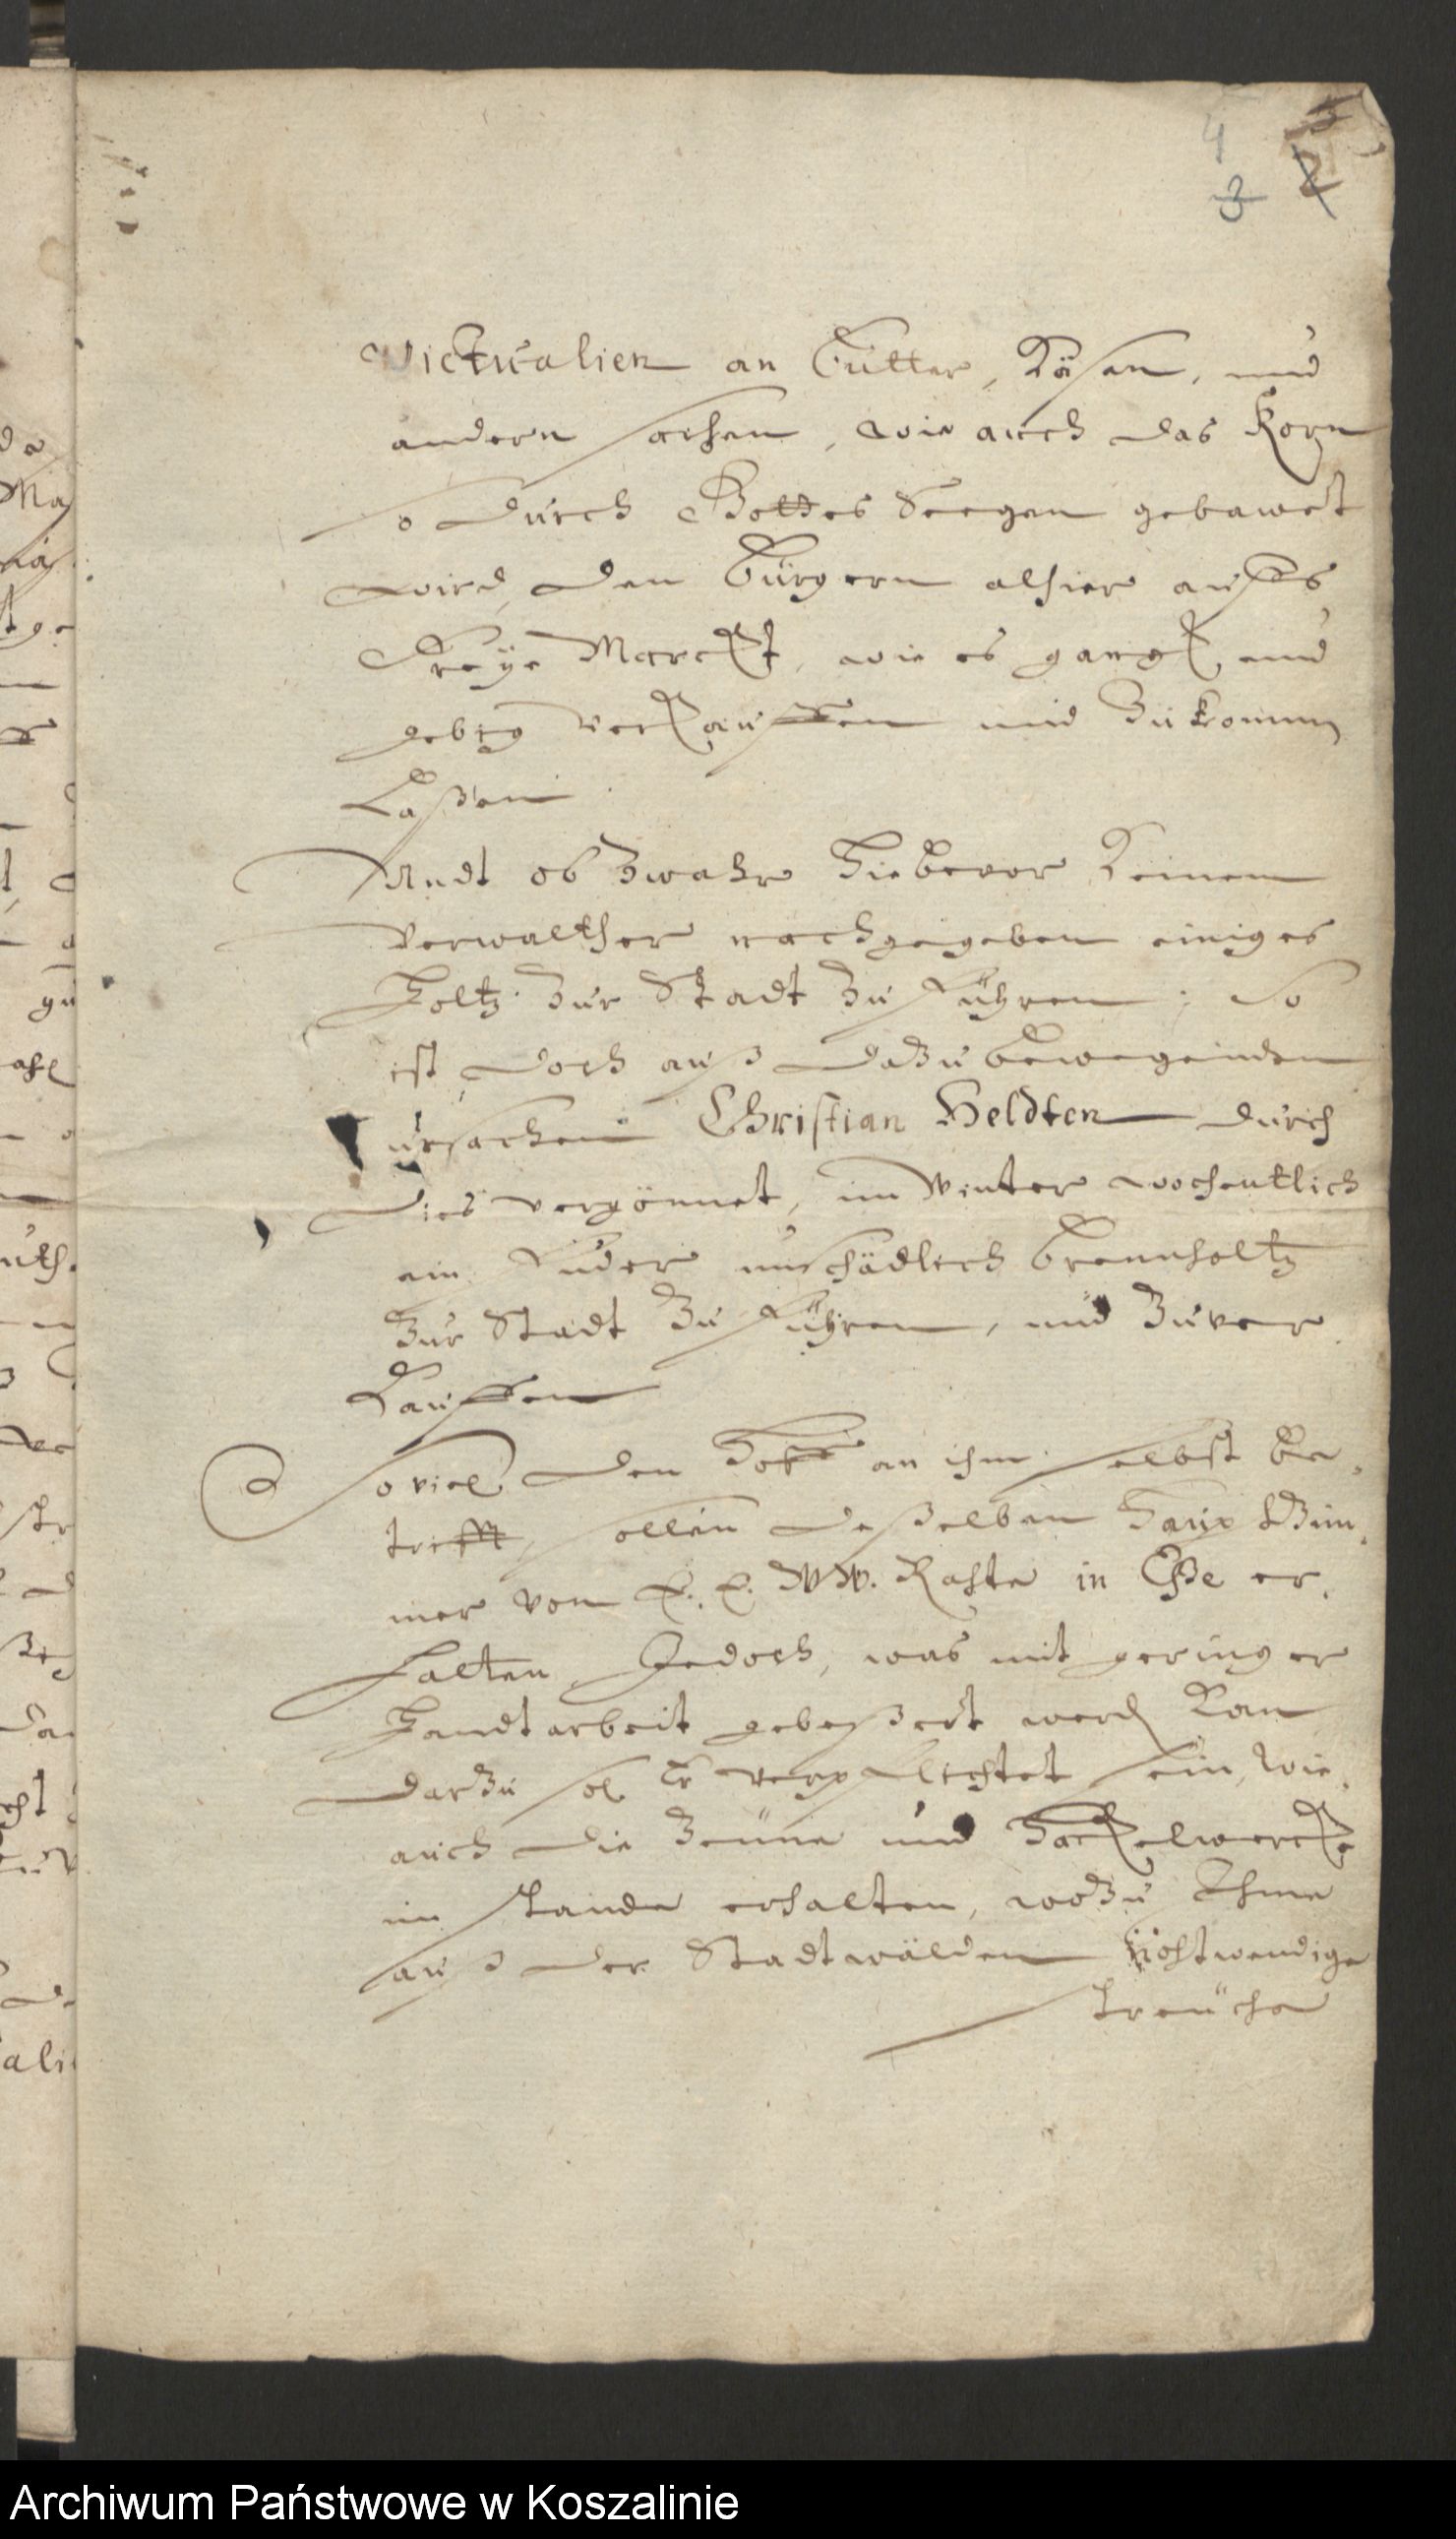 4 3
3 2
Victualien an Butter, Käsen, und
andern sachen, wie auch das Korn
so durch Gottes Seegen gebawet
wird, den Bürgern alhier auffs
Freye Marckt, wie es gangk und
gebig verkauffen und Zukommen
Laßen.
Undt ob Zwahr Hiebevor Keinem
Verwalther nachgegeben einiges
Holtz Zur Stadt Zu führen; So
ist doch auß daZu bewegenden
ursachen Christian Heldten durch
dies vergönnet, im Winter wochentlich
ein Fuder unschädlich Brennholtz
Zur Stadt Zu führen, und Zuver
Kauffen
So viel den Hoff an ihm selbst be,
trifft, sollen deßelben Zim,
mer von E. E. WW. Rahte in Eße er,
halten, Jedoch, was mit geringer
Handtarbeit gebeßert werden Kan
darZu sol Er verpflichtet sein, wie
auch die Zeüne und Hackelwercke
im stande erhalten, woZu Ihme
auß der Stadtwälden nohtwendige
streücher
Archiwum Państwowe w Koszalinie